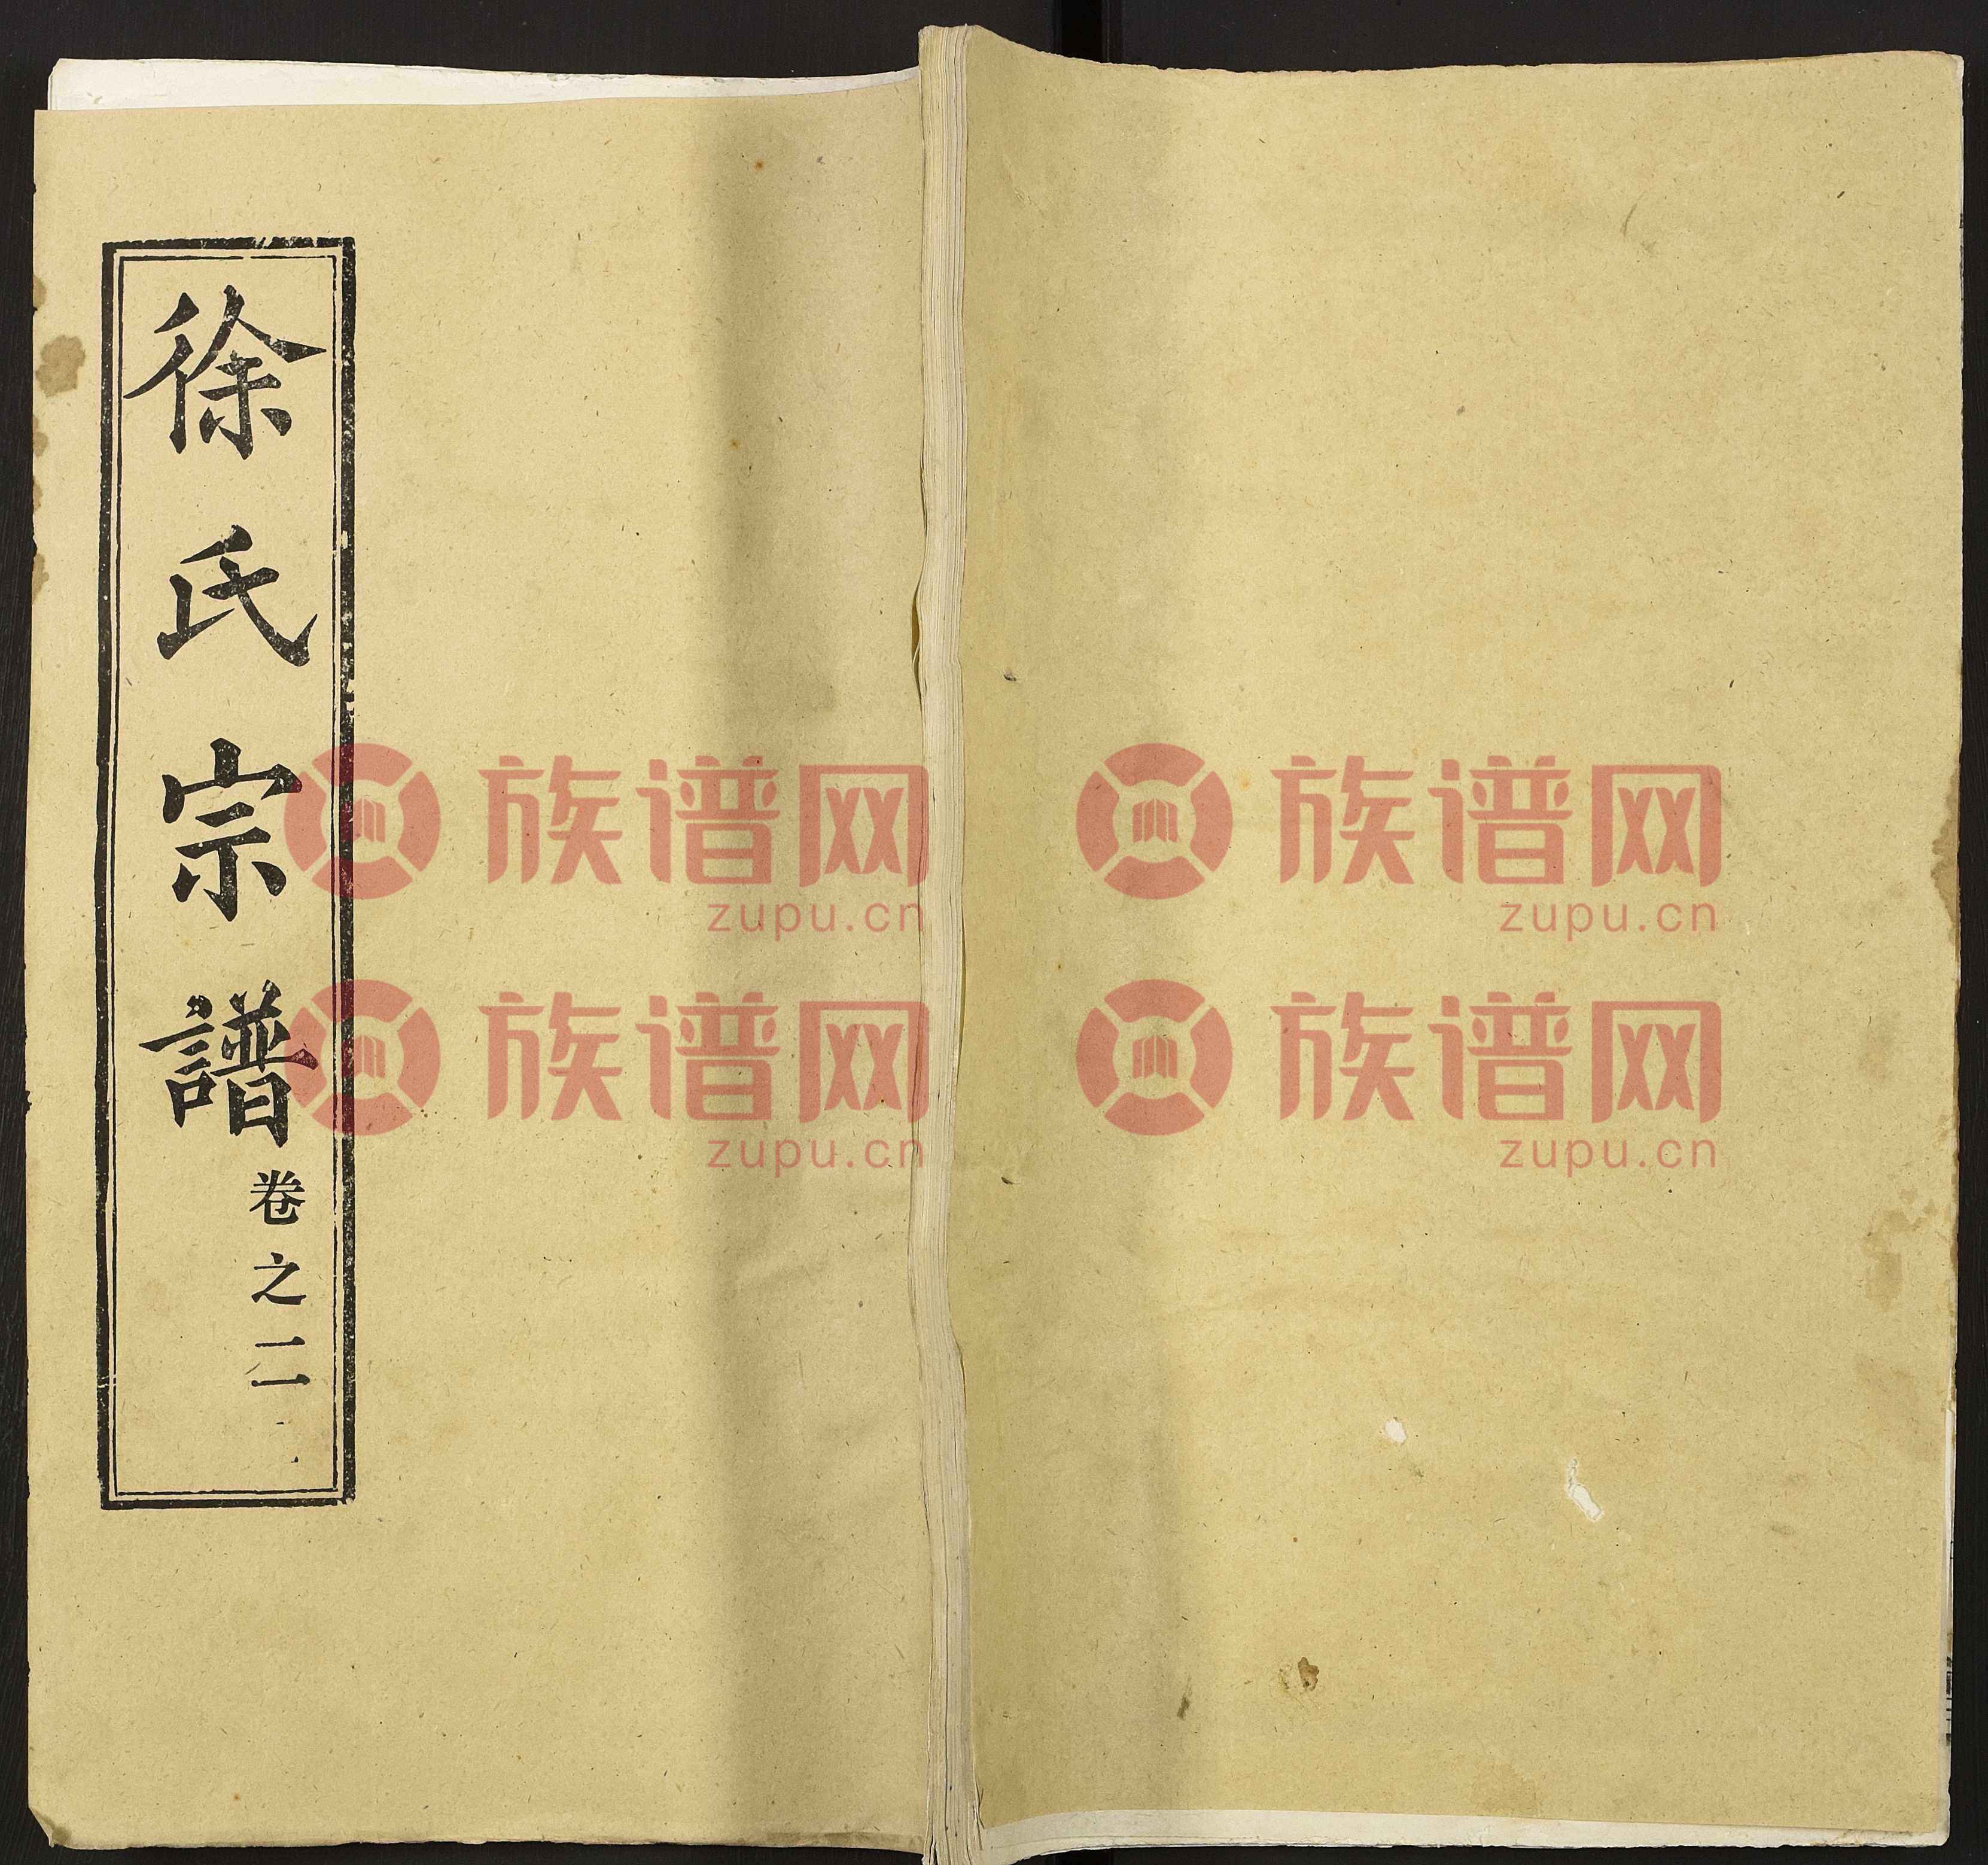 徐氏宗譜
卷之二
族谱网
zupu.cn
族谱网
zupu.cn
族谱网
zupu.cn
族谱网
zupu.cn